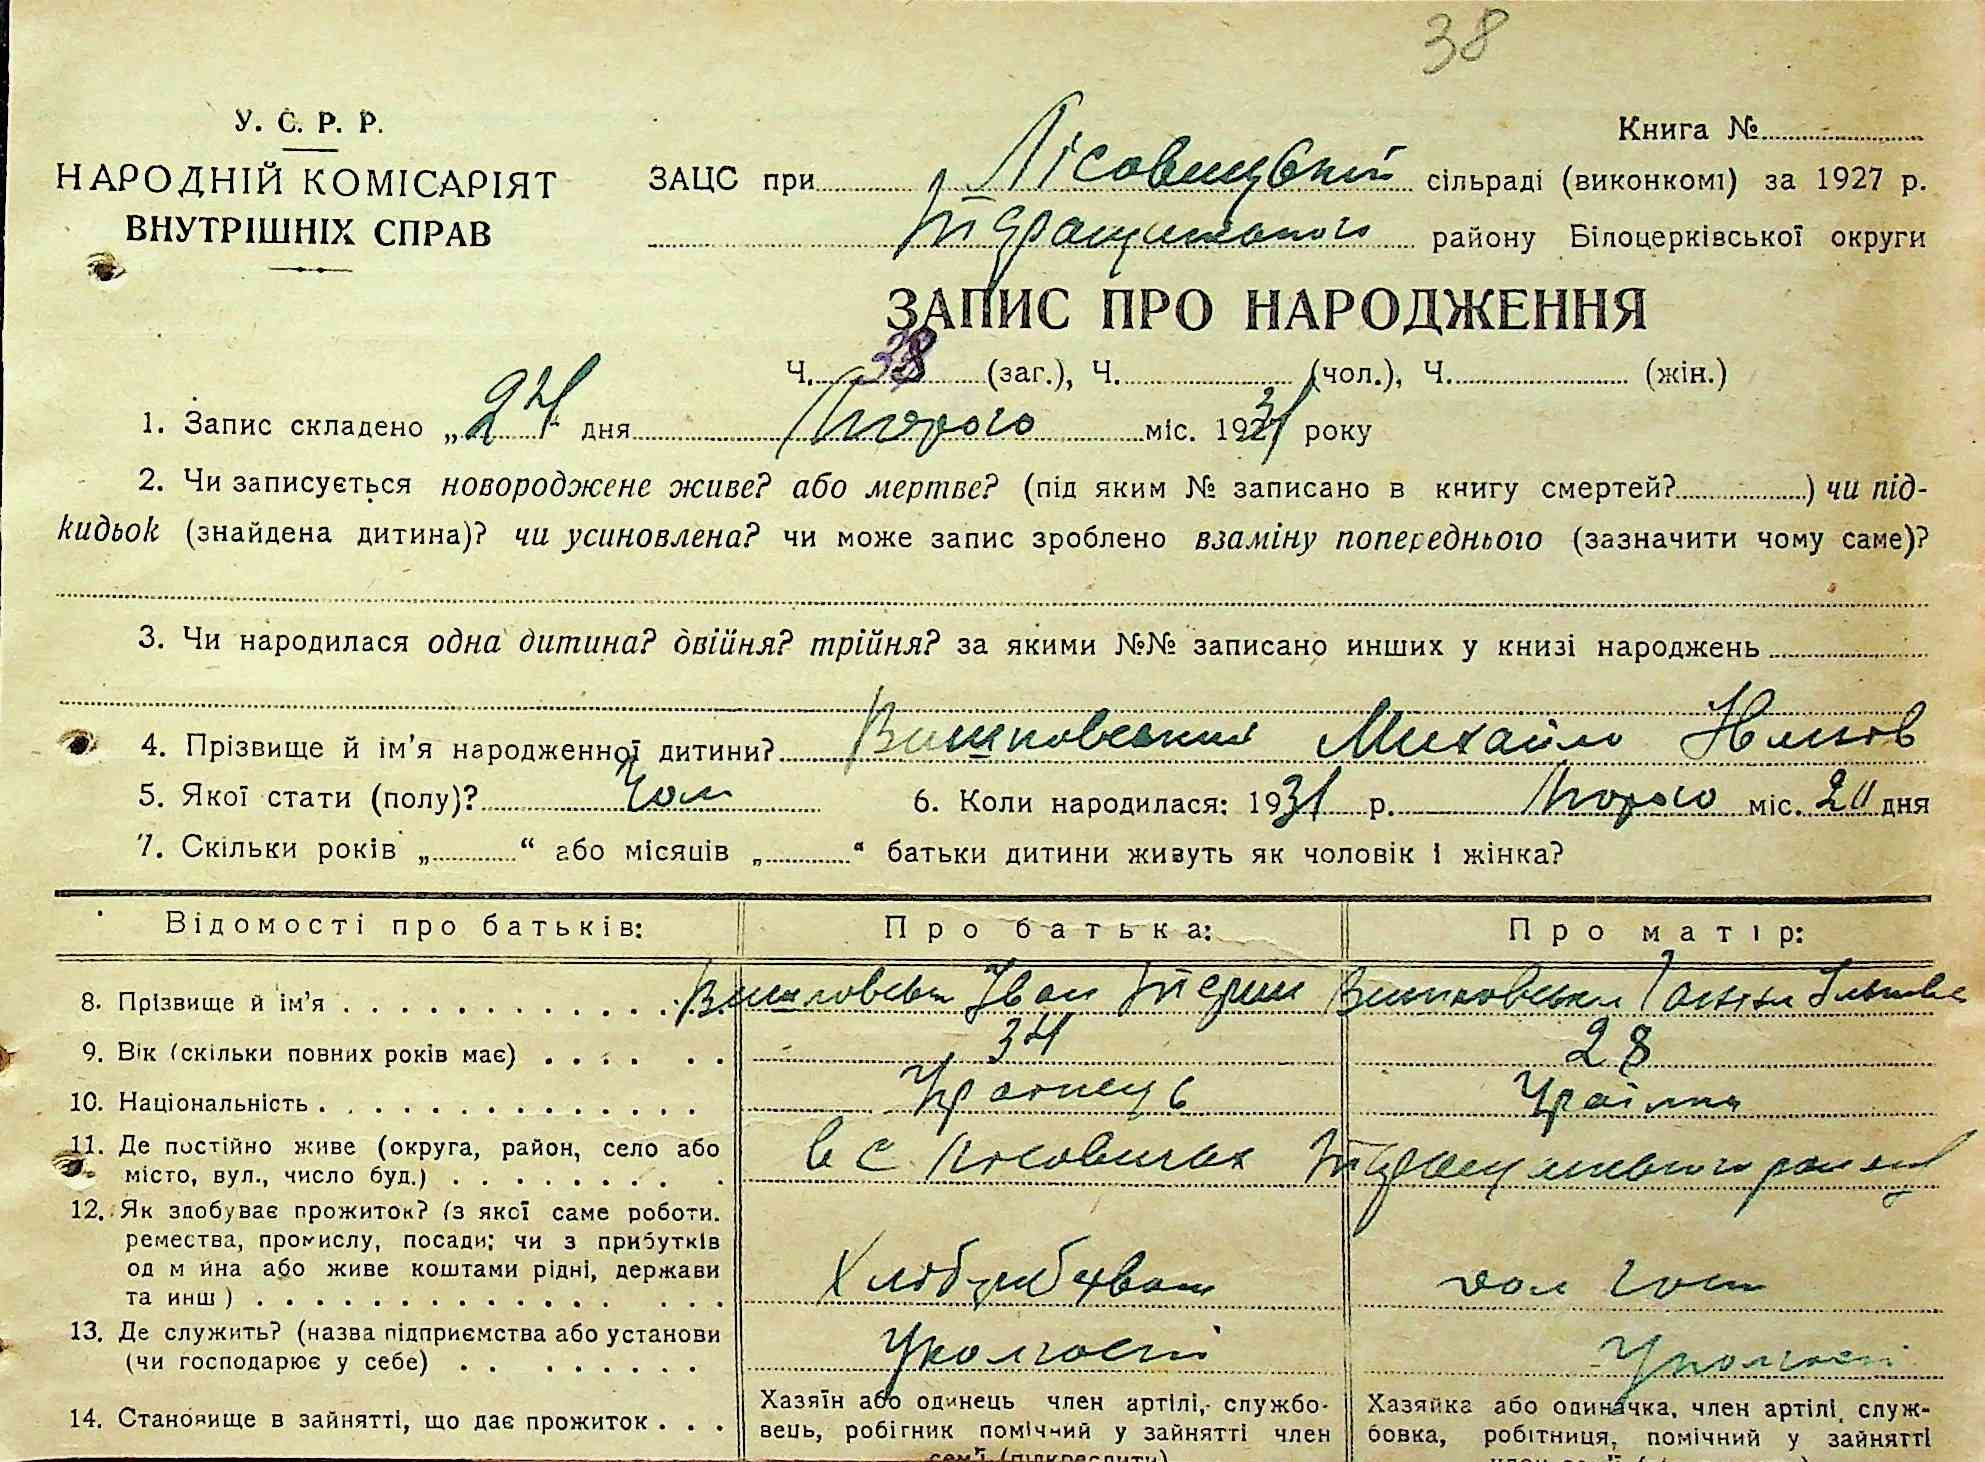 38
У. С. Р. Р.
НАРОДНІЙ КОМІСАРІЯТ
ВНУТРІШНІХ СПРАВ
Книга №
ЗАЦС при Лісовицькій сільраді (виконкомі) за 1927 р.
Таращанського району Білоцерківської округи
ЗАПИС ПРО НАРОДЖЕННЯ
Ч. 38 (заг.), Ч. (чол.), Ч. (жін.)
1. Запис складено „24 дня Лютого міс. 1931 року
2. Чи записується новороджене живе? або мертве? (під яким № записано в книгу смертей? ) чи під-
кидьок (знайдена дитина)? чи усиновлена? чи може запис зроблено взаміну попереднього (зазначити чому саме)?
3. Чи народилася одна дитина? двійня? трійня? за якими №№ записано инших у книзі народжень
4. Прізвище й ім'я народженної дитини? Вишковський Михайло
5. Якої стати (полу)? Чол 6. Коли народилася: 1931 р. Лютого міс. 20 дня
7. Скільки років „ “ або місяців „ “ батьки дитини живуть як чоловік і жінка?
Відомості про батьків: Про батька: Про матір:
8. Прізвище й ім'я Іван Вишковська Ганна
9. Вік (скільки повних років має) 34 28
10. Національність Українець Українка
11. Де постійно живе (округа, район, село або
місто, вул., число буд.) в с. Лісовичах Таращанського району
12. Як здобуває прожиток? (з якої саме роботи.
ремества, промислу, посади; чи з прибутків
од м йна або живе коштами рідні, держави
та инш) Хліборобством дом госп
13. Де служить? (назва підприємства або установи
(чи господарює у себе) У колгоспі У колгоспі
14. Становище в зайнятті, що дає прожиток
Хазяїн або одинець член артілі, службо-
вець, робігник помічний у зайнятті член
сем'ї (підкреслити)
Хазяйка або одиначка, член артілі, служ-
бовка, робітниця, помічний у зайнятті